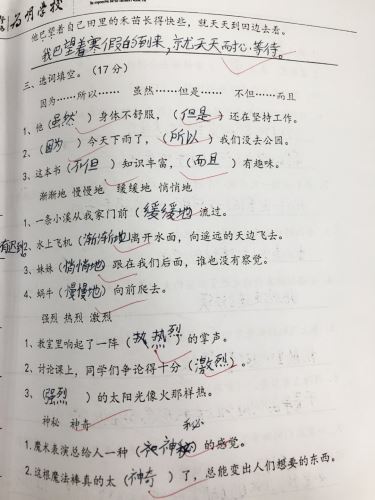 为明学校
他巴望着自己田里的禾苗长得快些，就天天到田边去看。
我巴望着寒假的到来，就天天开心等待。
三、选词填空。（17 分）
因为……所以…… 虽然……但是…… 不但……而且
1、他（虽然）身体不舒服，（但是）还在坚持工作。
2、（因为）今天下雨了，（所以）我们没去公园。
3、这本书（不但）知识丰富，（而且）有趣味。
渐渐地 慢慢地 缓缓地 悄悄地
1、一条小溪从我家门前（缓缓地）流过。
2、水上飞机（渐渐地）离开水面，向遥远的天边飞去。
3、妹妹（悄悄地）跟在我们后面，谁也没有察觉。
4、蜗牛（慢慢地）向前爬去。
强烈 热烈 激烈
1、教室里响起了一阵（热烈）的掌声。
2、讨论课上，同学们争论得十分（激烈）。
3、（强烈）的太阳光像火那样热。
神秘 神奇
1、魔术表演总给人一种（神秘）的感觉。
2、这根魔法棒真的太（神奇）了，总能变出人们想要的东西。